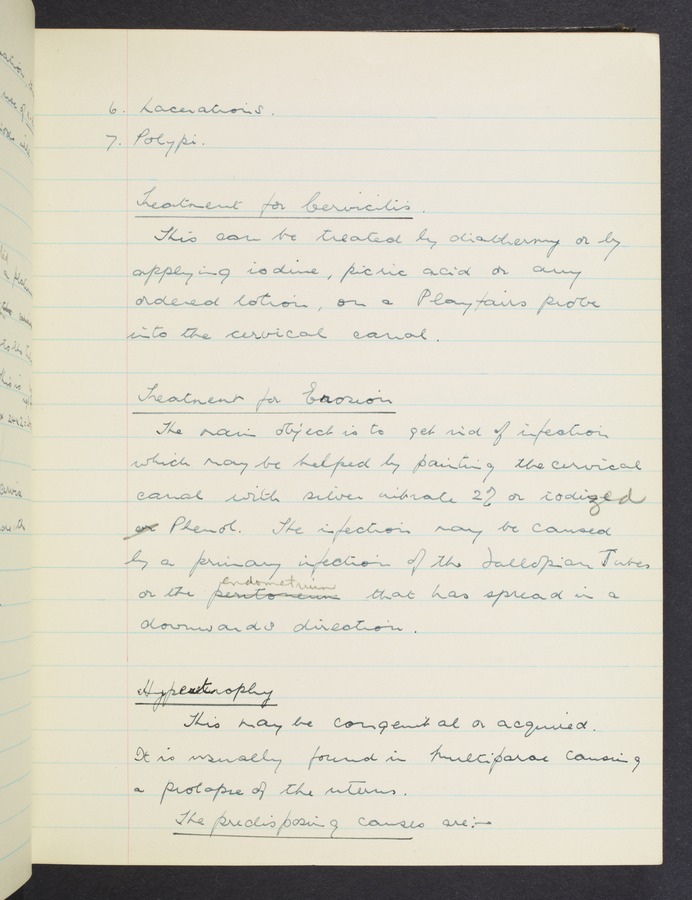 6. Lacerations.
7. Polypi.
Treatment for Cervicitis.
This can be treated by diathermy or by
applying iodine, picric acid or any
ordered lotion, on a Playfairs probe
into the cervical canal.
Treatment for Erosion
The main object is to get rid of infection
which may be helped by painting the cervical
canal with silver nitrate 2% or iodized
or Phenol. The infection may be caused
by a primary infection of the Fallopian Tubes
endometrium
or the peritoneum that has spread in a
downwards direction.
Hypertrophy
This may be congenital or acquired.
It is usually found in multiparae causing
a prolapse of the uterus.
The predisposing causes are:-